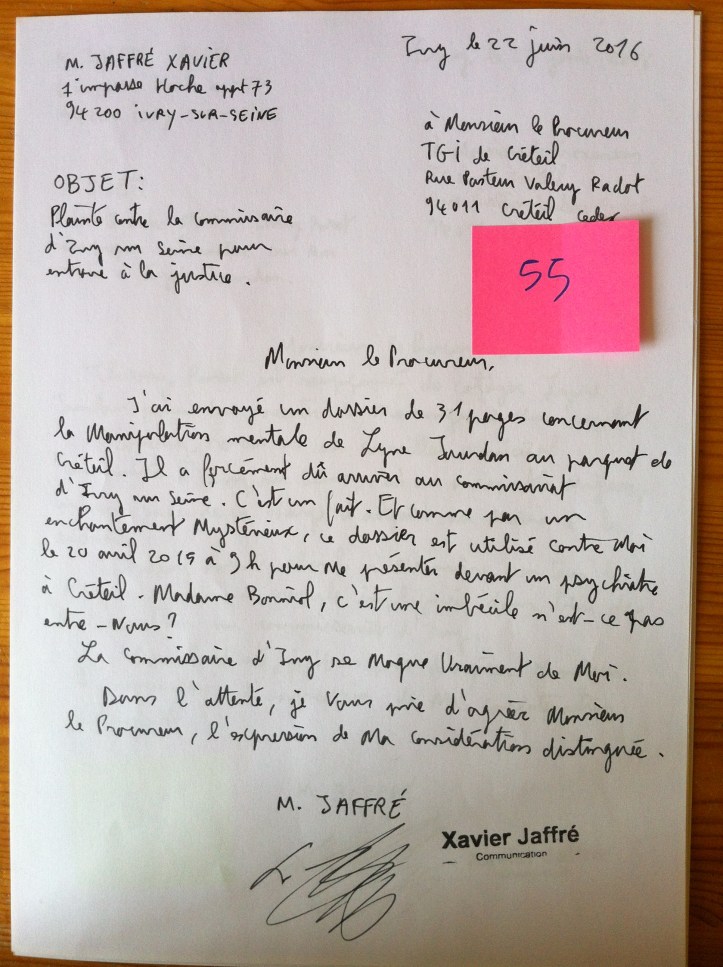 M. JAFFRÉ XAVIER
1 impasse Hoche appt 73
94200 IVRY-SUR-SEINE
Ivry le 22 juin 2016
à Monsieur le Procureur
TGI de Créteil
Rue Pasteur Valery Radot
94011 Créteil cedex
OBJET:
Plainte contre la commissaire
d'Ivry sur Seine pour
entrave à la justice.
55
Monsieur le Procureur,
J'ai envoyé un dossier de 31 pages concernant
la Manipulation mentale de Lyne Jourdan au parquet de
Créteil. Il a forcément dû arriver au commissariat
d'Ivry sur Seine. C'est un fait. Et comme par un
enchantement Mystérieux, ce dossier est utilisé contre Moi
le 20 avril 2015 à 9h pour me présenter devant un psychiatre
à Créteil. Madame, c'est une imbécile n'est-ce pas
entre-nous?
La Commissaire d'Ivry se Moque Vraiment de Moi.
Dans l'attente, je vous prie d'agréer Monsieur
le Procureur, l'expression de Ma considération distinguée.
M. JAFFRÉ
Xavier Jaffré
Communication